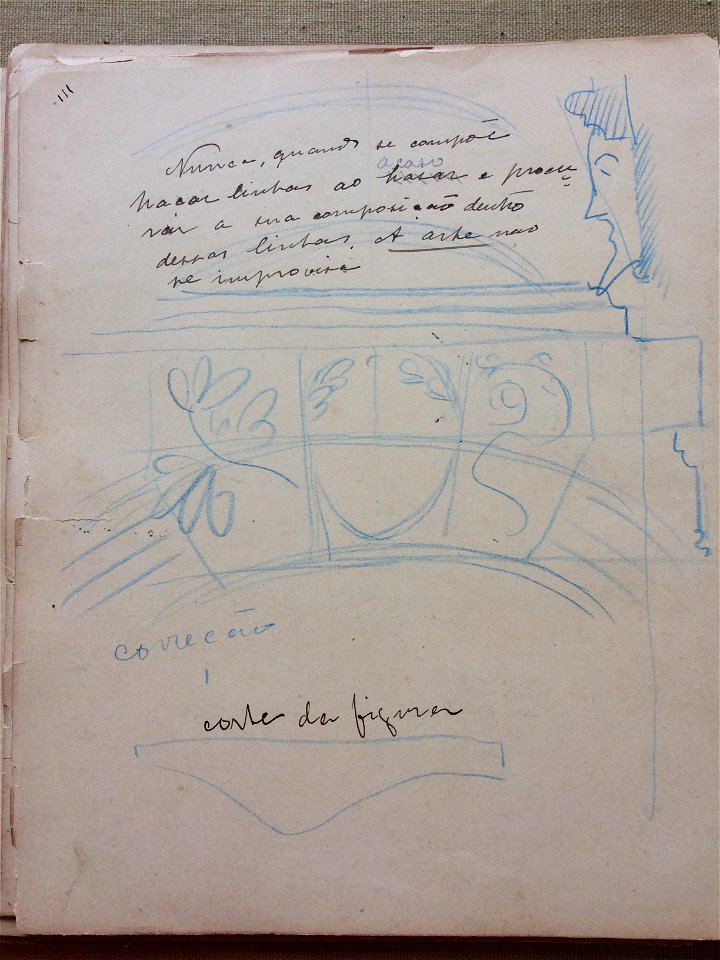 111
Nunca, quando se compõe
traçar linhas ao hasar e procu
acaso
rar a sua composição dentro
dessas linhas. A arte não
se improvisa
correcão
corte da figura